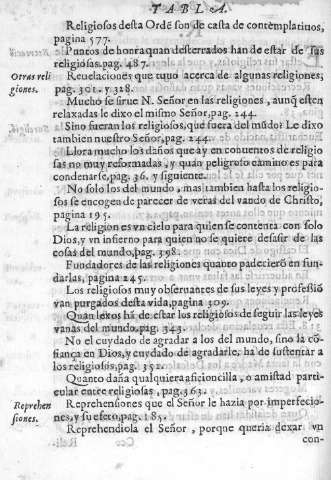 TABLA.
Religiosos desta Ordē son de casta de contemplatiuos,
pagina 577.
Puntos de honra quan desterrados han de estar de sus
religiosas. pag. 487.
Otras reli
giones.
Reuelaciones que tuuo acerca de algunas religiones,
pag. 301. y 328.
Mucho se sirue N. Señor en las religiones, aunq̃ estē
relaxadas le dixo el mismo Señor, pag. 244.
Sino fueran los religiosos, que fuera del mūdo? Le dixo
tambien nuestro Señor, pag. 244.
Llora mucho los daños que ay en conuentos de religio
sas no muy reformadas, y quan peligroso camino es para
condenarse, pag. 36. y siguiente.
No solo los del mundo, mas tambien hasta los religio-
sos se encogen de parecer de veras del vando de Christo,
pagina 195.
La religion es vn cielo para quien se contenta con solo
Dios, y vn infierno para quien no se quiere desasir de las
cosas del mundo, pag. 398.
Fundadores de las religiones quanto padecierō en fun-
darlas, pagina 245.
Los religiosos muy obseruantes de sus leyes y professiō
van purgados desta vida, pagina 309.
Quan lexos hā de estar los religiosos de seguir las leyes
vanas del mundo, pag. 343.
No el cuydado de agradar a los del mundo, sino la cō-
fiança en Dios, y cuydado de agradarle, hā de sustentar a
los religiosos, pag. 352.
Quanto daña qualquiera aficioncilla, o amistad parti-
cular entre religiosas, pag. 363.
Reprehen
siones.
Reprehensiones que el Señor le hazia por imperfecio-
nes, y su efeto, pag. 185.
Reprehendiola el Señor, porque queria dexar vn
Ccc
con-